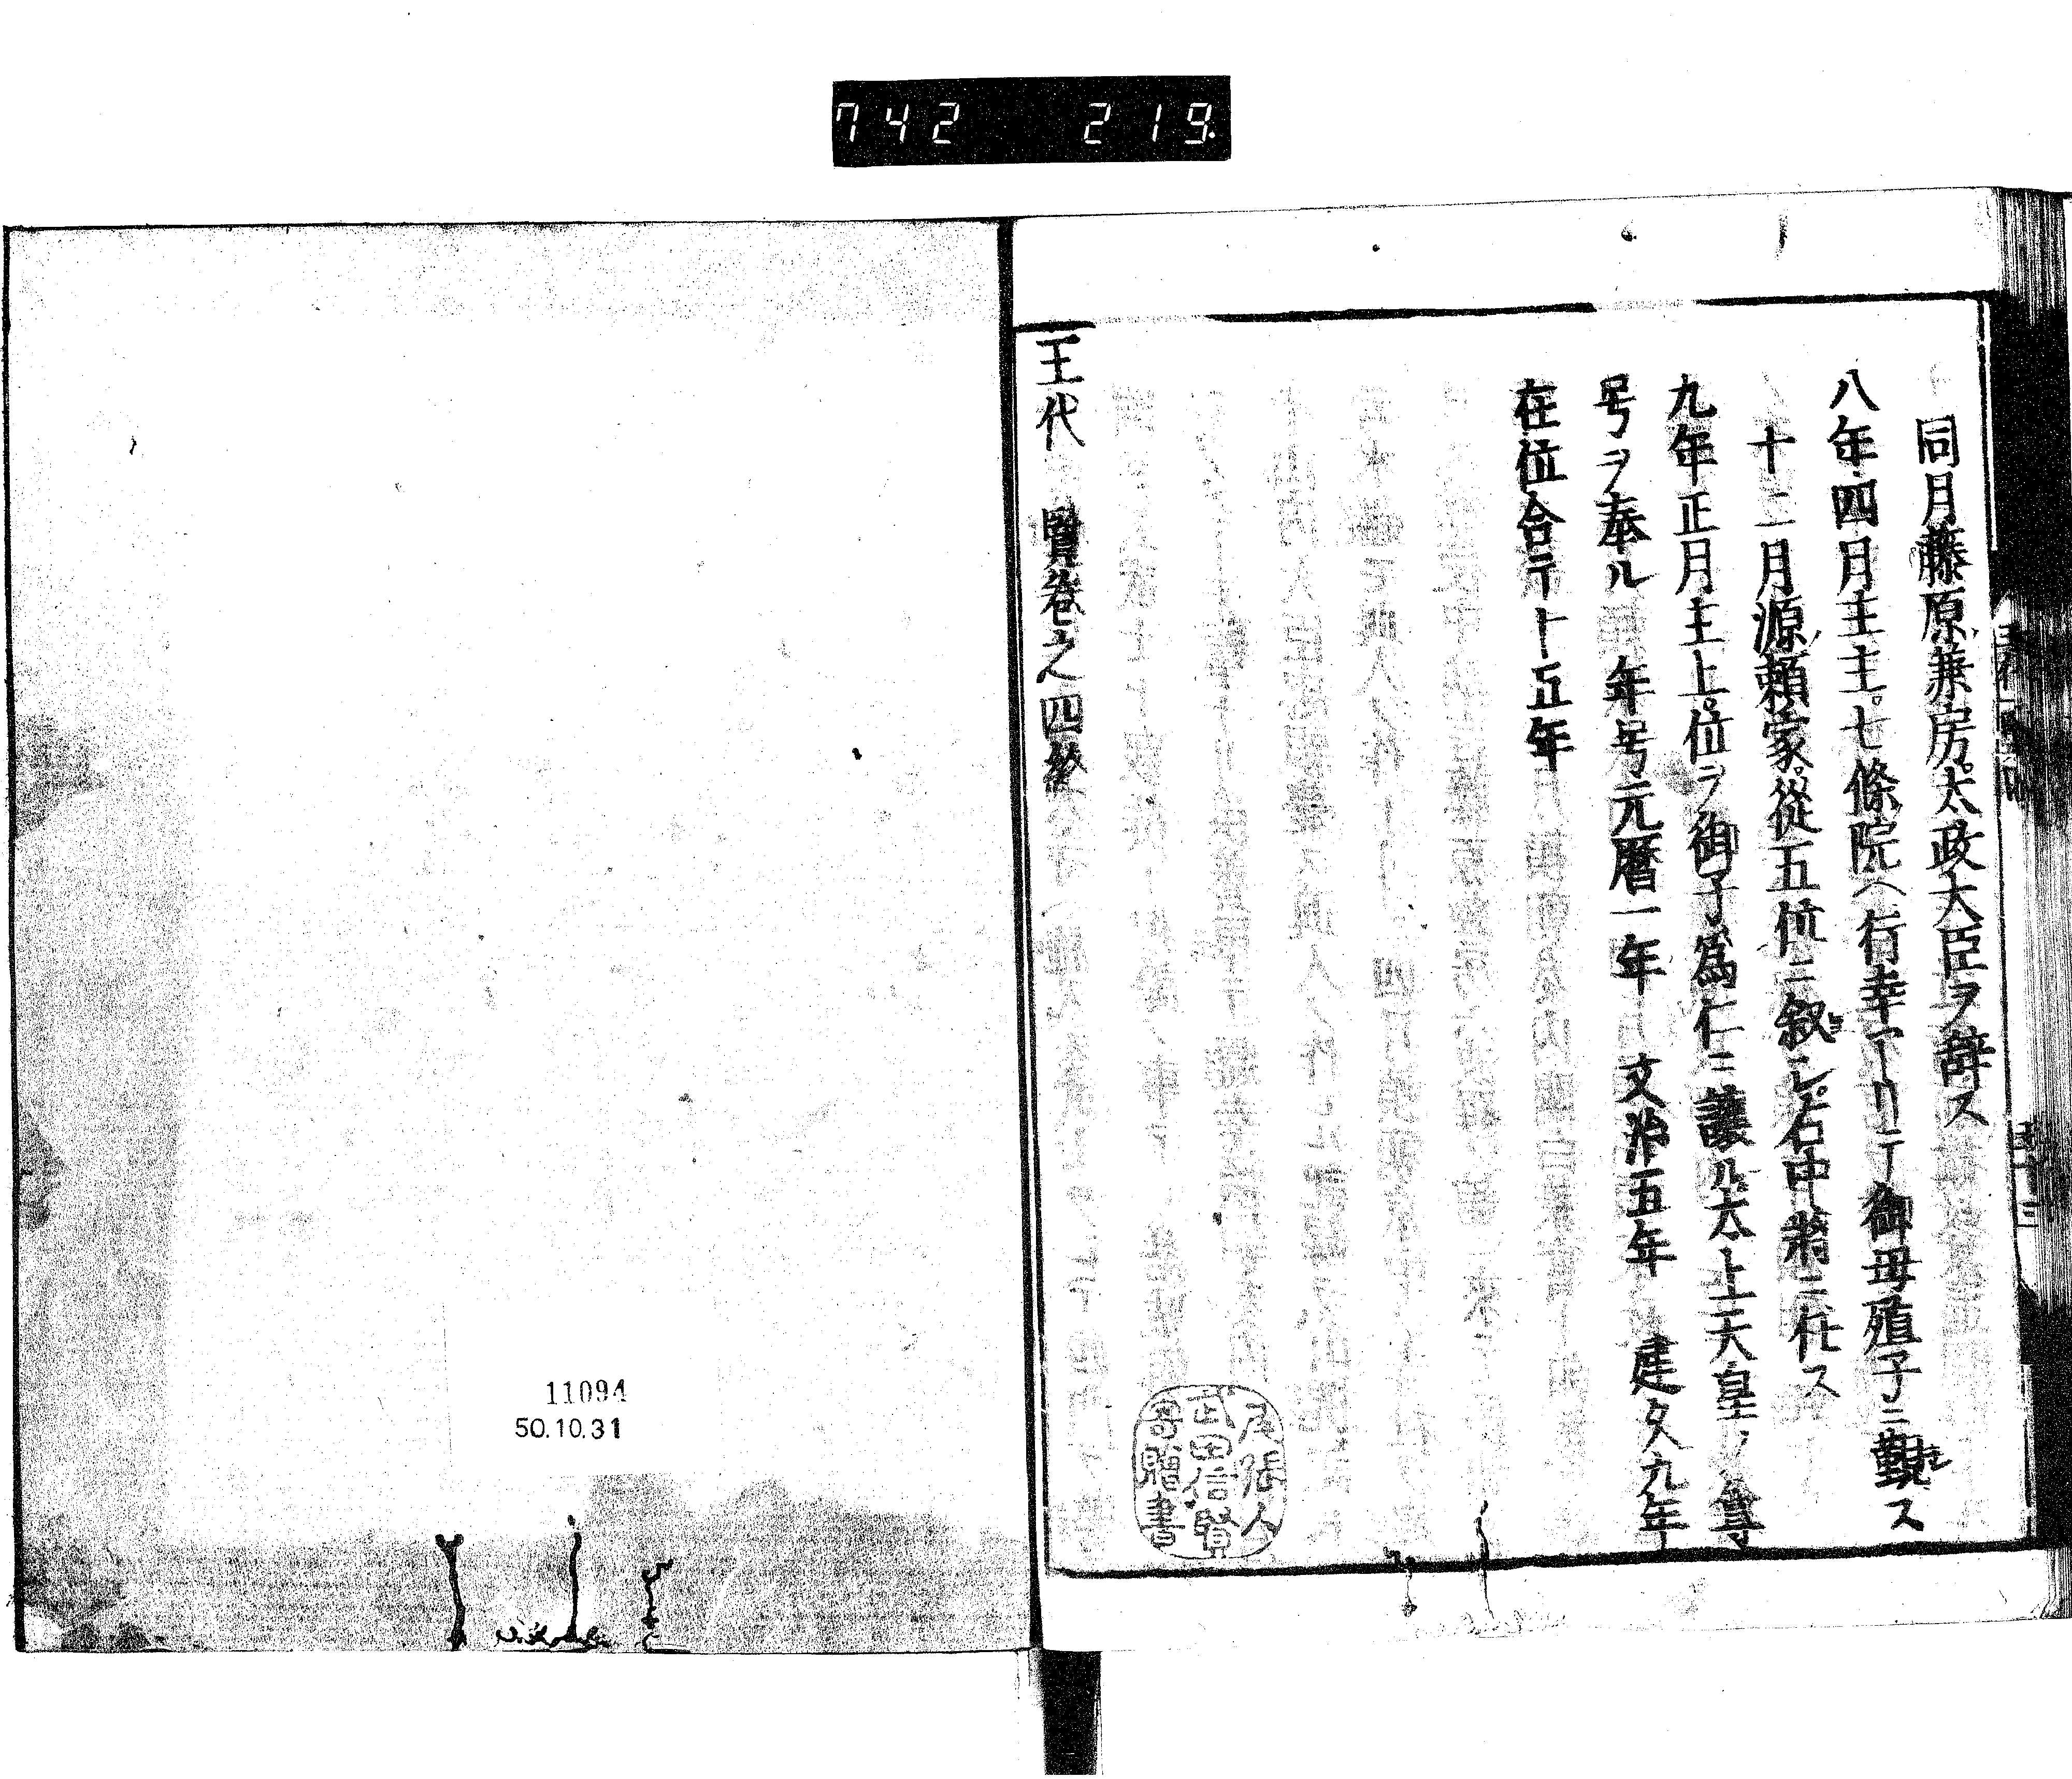 742 219
同月藤原兼房。太政大臣ヲ辞ス
八年四月主上。七條院ヘ行幸アリテ御母殖子ニ覲ス
十二月源頼家。從五位ニ叙シ。右中將ニ任ス
九年正月主上。位ヲ御子爲仁ニ讓ル。太上天皇ノ尊
号ヲ奉ル 年号元暦一年 文治五年 建久九年
在位合テ十五年
王代一覽卷之四終
尾張人
武田信賢
寄贈書
11094
50.10.31